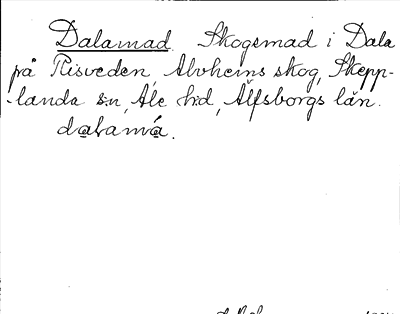 Dalamad. Skogsmad i Dala
på Risveden, Alvheims skog, Skepp-
-landa s:n, Ale h:d, Älfsborgs län.
dalamá.